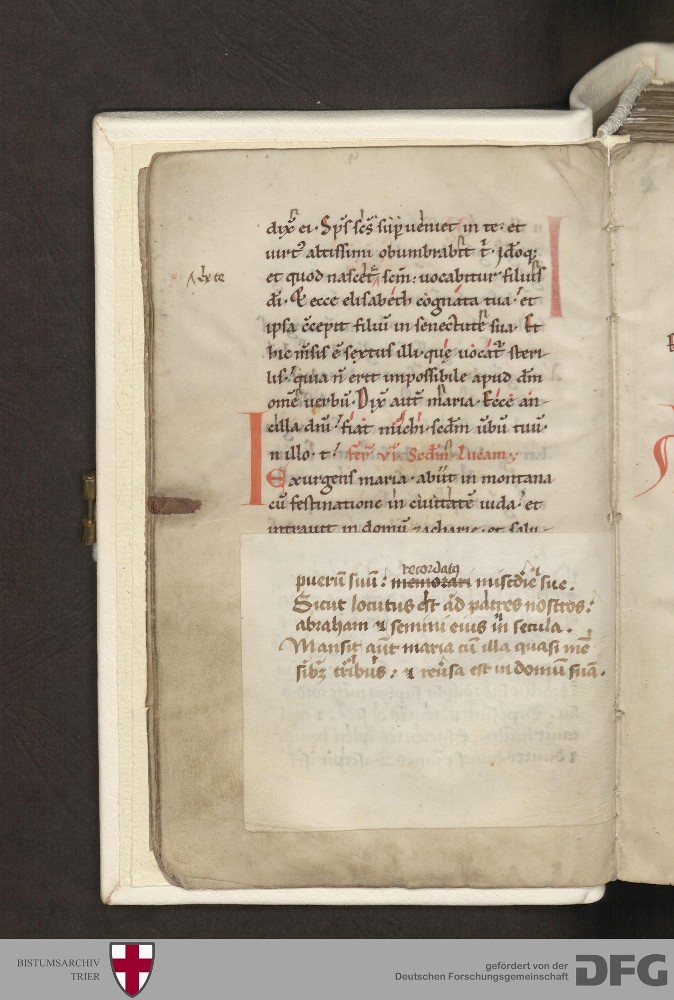 dix̅ ei. Sp̅s sc̅s sup̲ueniet in te. et
uirtꝰ altissimi obumbrabit t̅. Ideoq;
et quod nascet᷑ scm̅: uocabitur filius
ex te
di̅. Et ecce elisabeth cognata tua. et
ipsa ccepit filiu̅ in senectute sua. Et
hic m̅sis e̅ sextus illi. que̜ uocat᷑ steri
lis. quia n̅ erit impossibile apud dm̅
om̅e uerbu̅. Dix̅ aut̅ maria. Ecce an
cilla dn̅i. fiat michi scdm̅ ubu̅ tuu̅.
In illo. t. fer̅ vi. Scdm̅. Lucam
Exurgens maria. abiit in montana
cu̅ festinatione in ciuitate̅ iuda. et
intrauit in domu̅ zacharie. et salu
recordatꝰ
pueru̅ suu̅: memorari mis̅cdie̅ sue.
Sicut locutus est ad patres nostros:
abraham ⁊ semini eius in secula.
Mansit aut̅ maria cu̅ illa quasi me̅
sibꝫ tribus: ⁊ reu̅sa est in domu̅ sua̅.
BISTUMSARCHIV
TRIER
gefördert von der
Deutschen Forschungsgemeinschaft
DFG